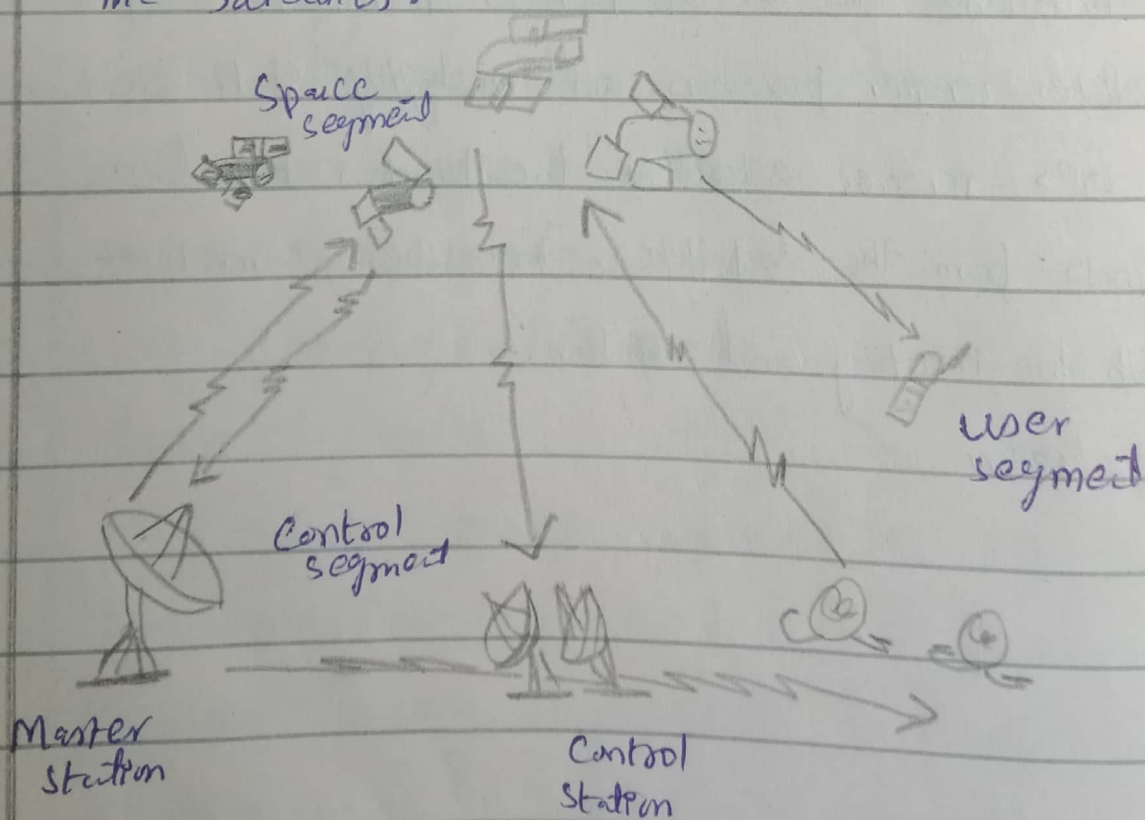 the satellites.
Space
segment
User
segment
Control
segment
Master
Station
Control
Station